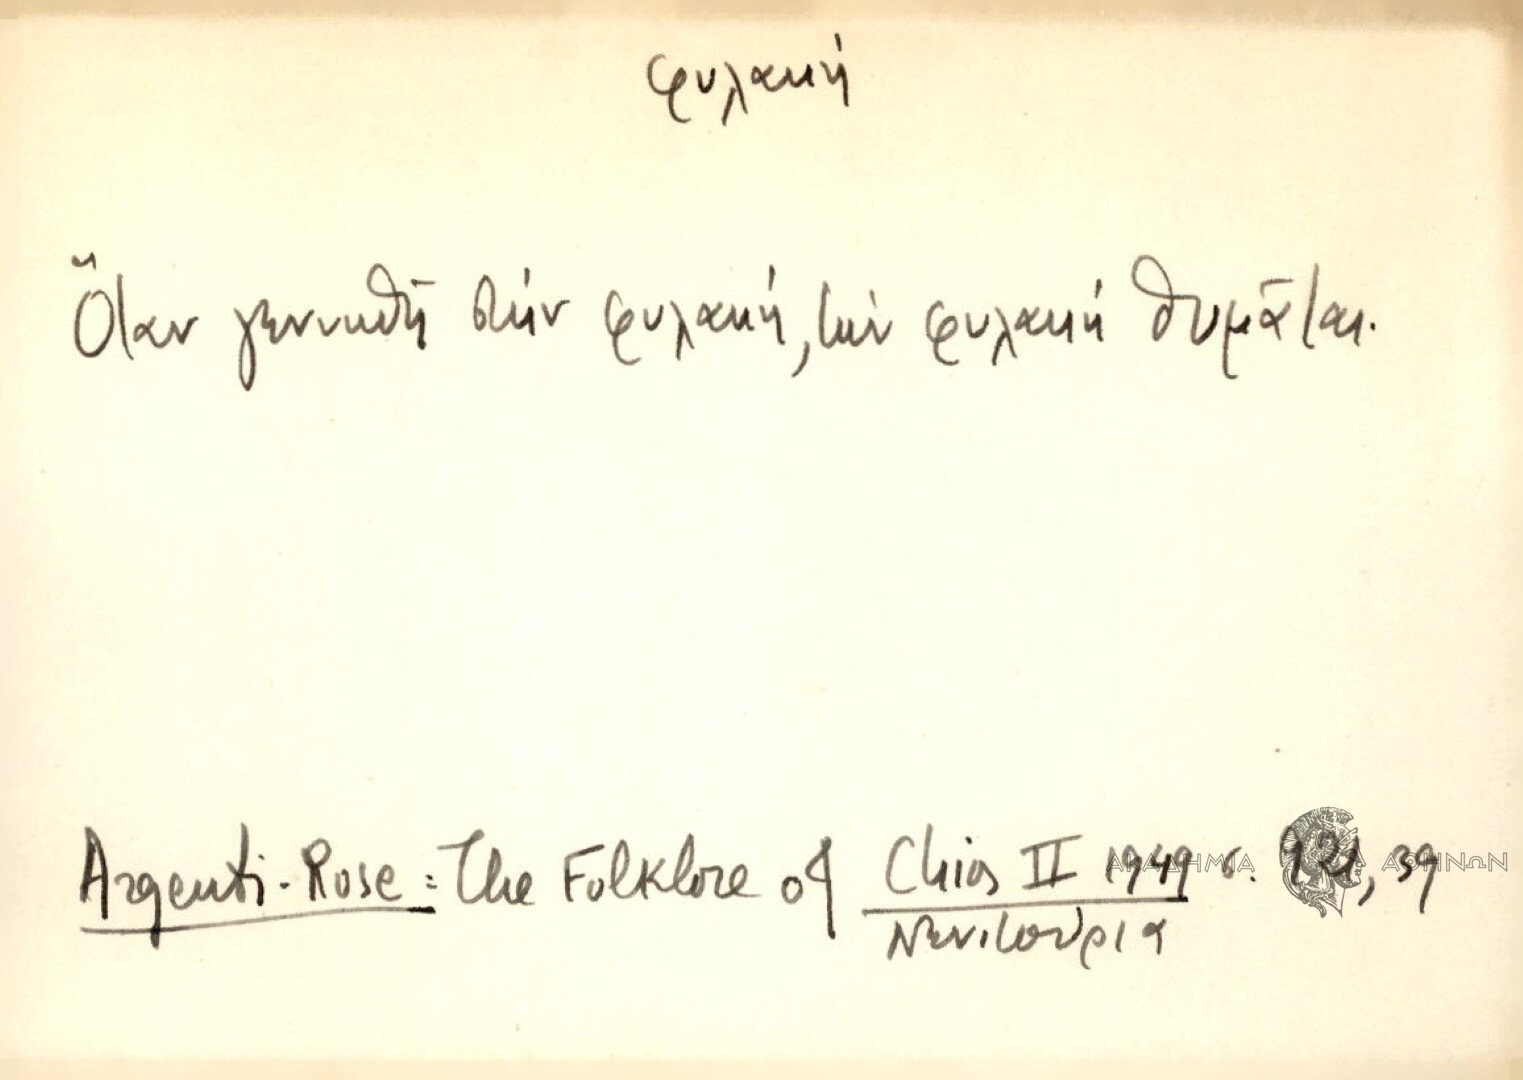 φυλακή
Ὅταν γεννηθῆ στήν φυλακή, τήν φυλακή θυμᾶται.
Argenti-Rose: The Folklore of Chios II 1949 σ. 921, 39
Νενιτούρια
ΑΚΑΔΗΜΙΑ ΑΘΗΝΩΝ